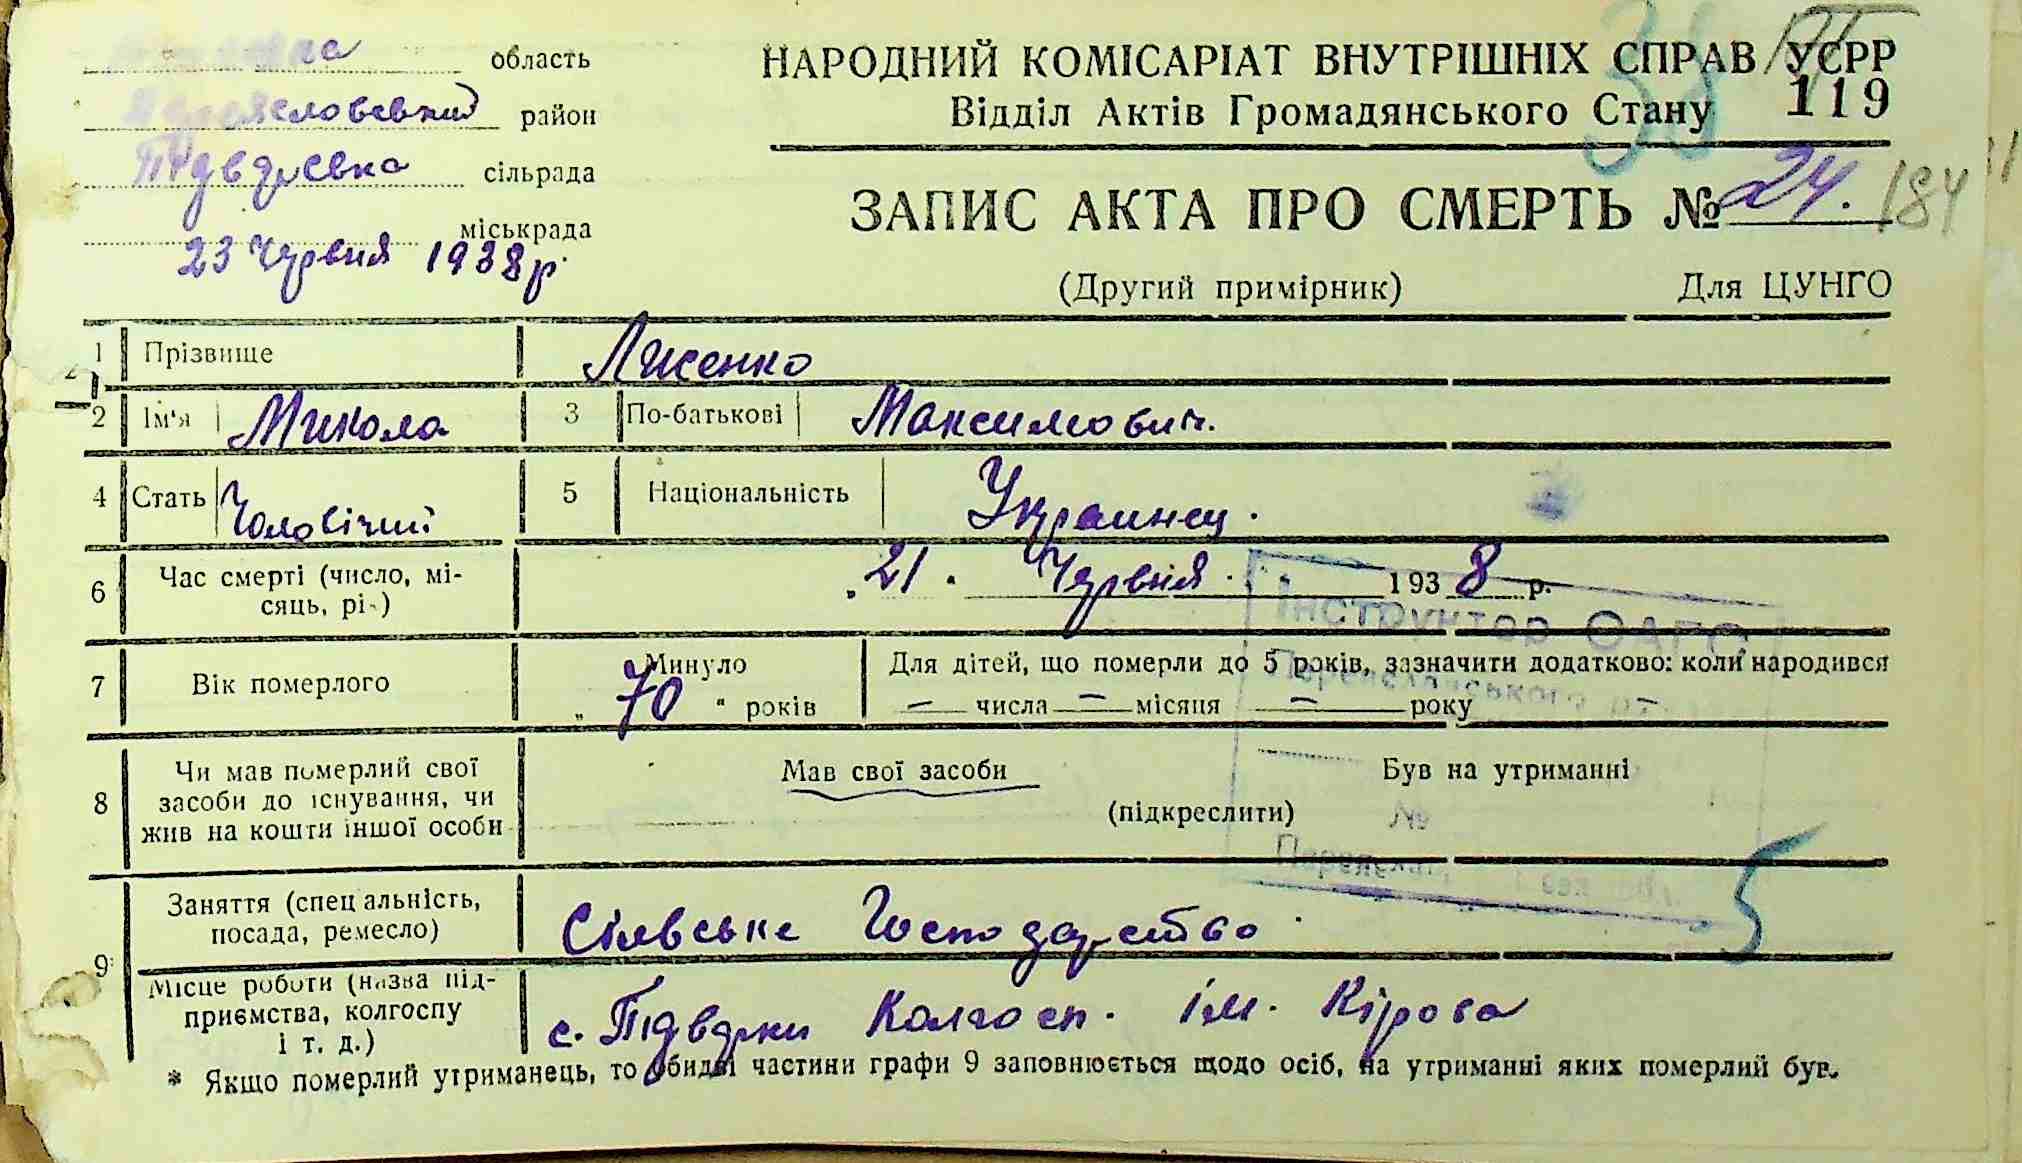 область
район
Підварська сільрада
міськрада
23 Червня 1938 р.
НАРОДНИЙ КОМІСАРІАТ ВНУТРІШНІХ СПРАВ УСРР
Відділ Актів Громадянського Стану
119
38
ЗАПИС АКТА ПРО СМЕРТЬ № 24. 184
(Другий примірник) Для ЦУНГО
1 Прізвище Лисенко
2 Ім'я Микола 3 По-батькові Максимович.
4 Стать Чоловічий 5 Національність Украинец.
6 Час смерті (число, мі-
сяць, рі.) „21. Червня. 1938 р.
Інструктор ОАГС
7 Вік померлого Минуло
„ 70 “ років
Для дітей, що померли до 5 років, зазначити додатково: коли народився
— числа — місяця — року —
8 Чи мав померлий свої
засоби до існування, чи
жив на кошти іншої особи
Мав свої засоби Був на утриманні
(підкреслити)
№
5
9 Заняття (спеціальність,
посада, ремесло) Сілвське Господарство
Місце роботи (назва під-
приємства, колгоспу
і т. д.) с. Підварки Колгосп. ім. Кірова
* Якщо померлий утриманець, то обидві частини графи 9 заповнюється щодо осіб, на утриманні яких померлий був.